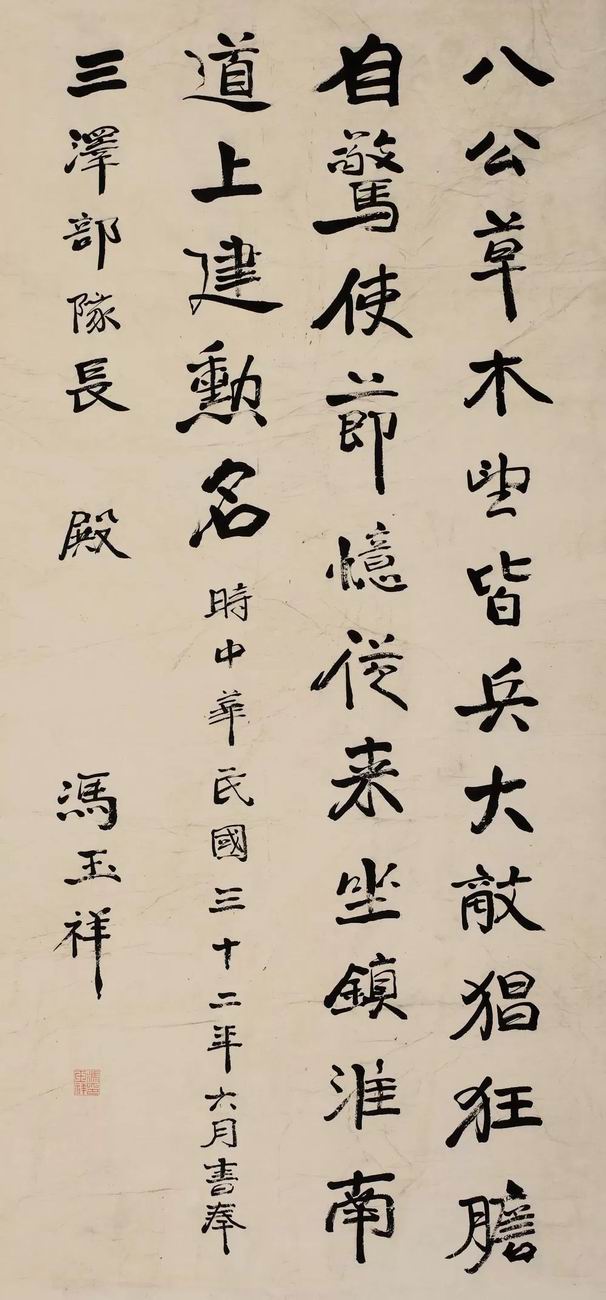 八公草木望皆兵大敵猖狂膽
自驚使莭憶從来坐鎮淮南
道上建勳名 時中華民國三十二年六月書奉
三澤部隊長 殿 馮玉祥